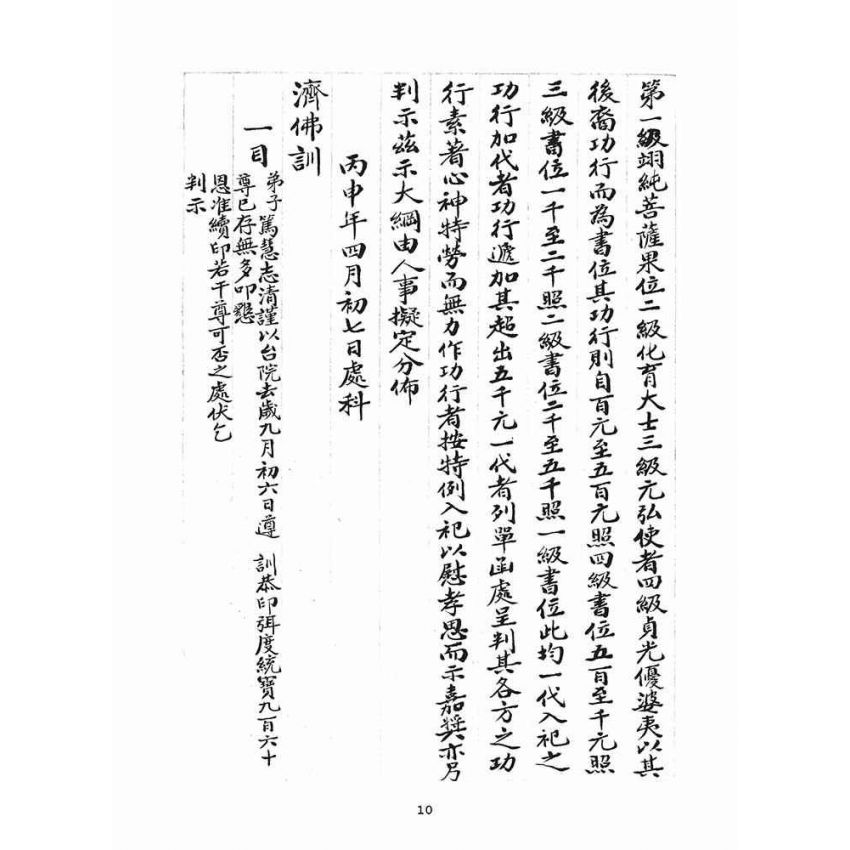 第一級翊純菩薩果位二級化育大士三級元弘使者四級貞光優婆夷以其
後裔功行而為書位其功行則自百元至五百元照四級書位五百至千元照
三級書位一千至二千照二級書位二千至五千照一級書位此均一代入祀之
功行加代者功行遞加其超出五千元一代者列單函處呈判其各方之功
行素著心神特勞而無力作功行者按特例入祀以慰孝思而示嘉獎亦另
判示茲示大綱由人事擬定分佈
丙申年四月初七日處科
濟佛訓
一目
弟子篤慧志清謹以台院去歲九月初六日遵 訓恭印弭度統寶九百六十
尊已存無多叩懇
恩准續印若干尊可否之處伏乞
判示
10